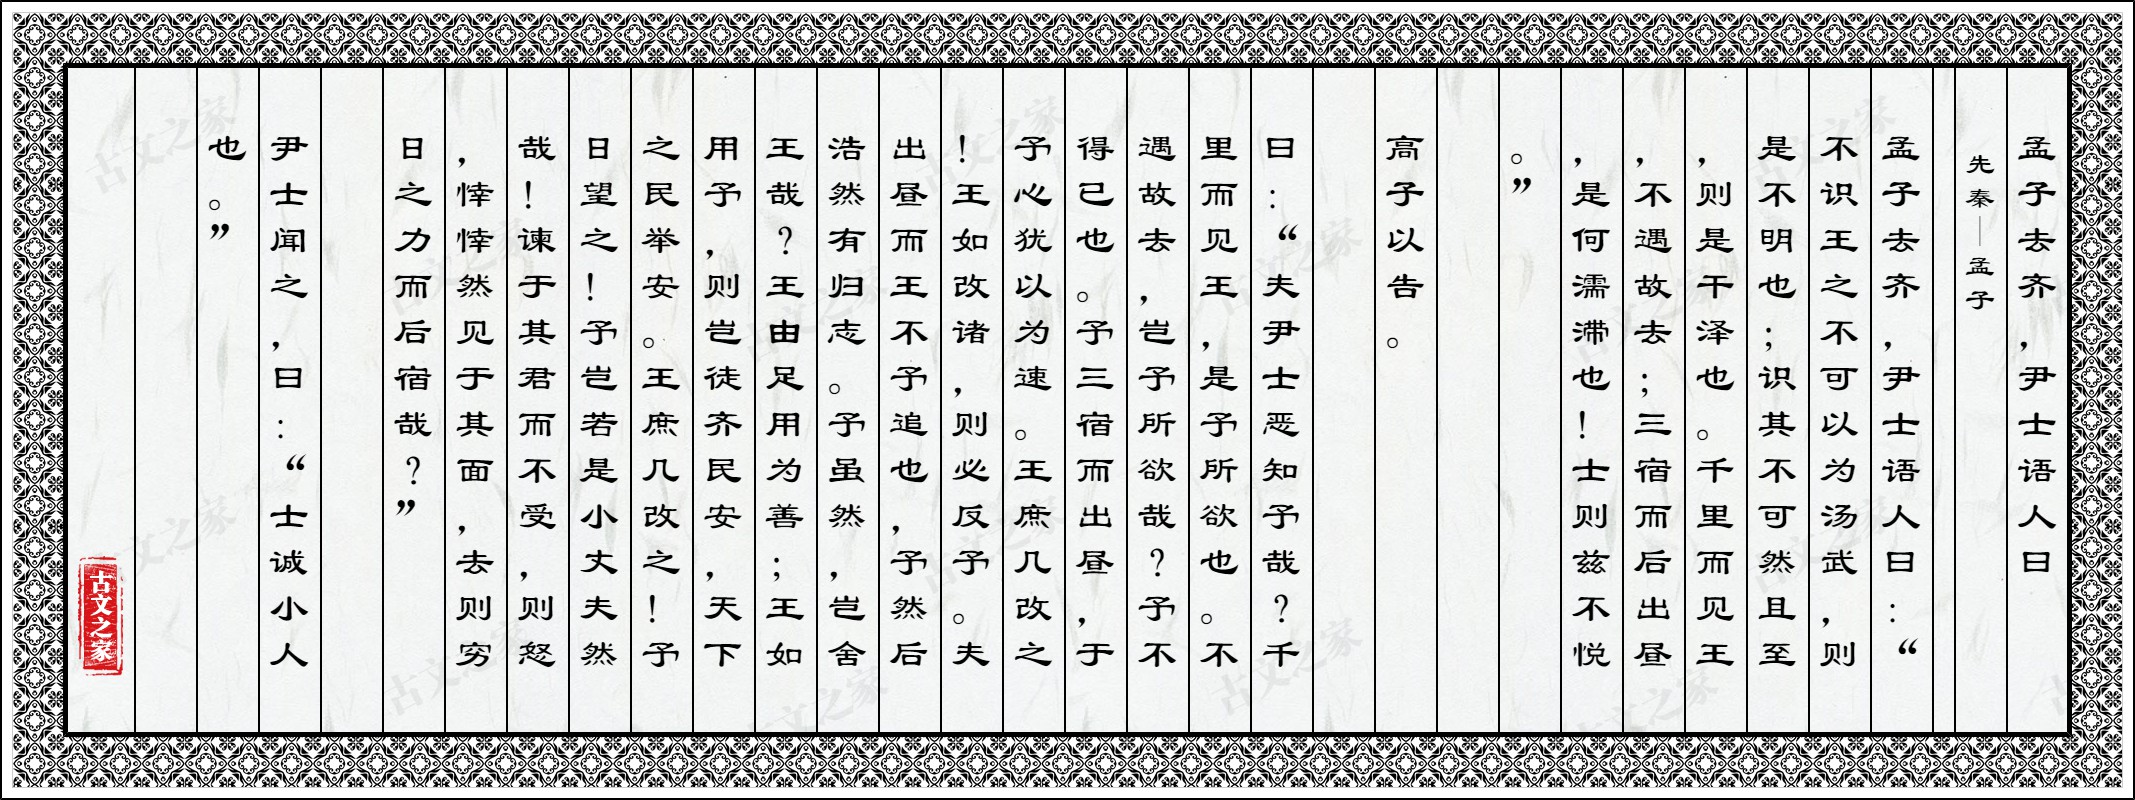 孟子去齐，尹士语人曰
先秦—孟子
孟子去齐，尹士语人曰：“
不识王之不可以为汤武，则
是不明也；识其不可然且至
，则是干泽也。千里而见王
，不遇故去；三宿而后出昼
，是何濡滞也！士则兹不悦
。”
高子以告。
曰：“夫尹士恶知予哉？千
里而见王，是予所欲也。不
遇故去，岂予所欲哉？予不
得已也。予三宿而出昼，于
予心犹以为速。王庶几改之
！王如改诸，则必反予。夫
出昼而王不予追也，予然后
浩然有归志。予虽然，岂舍
王哉？王由足用为善；王如
用予，则岂徒齐民安，天下
之民举安。王庶几改之！予
日望之！予岂若是小丈夫然
哉！谏于其君而不受，则怒
，悻悻然见于其面，去则穷
日之力而后宿哉？”
尹士闻之，曰：“士诚小人
也。”
古文之家